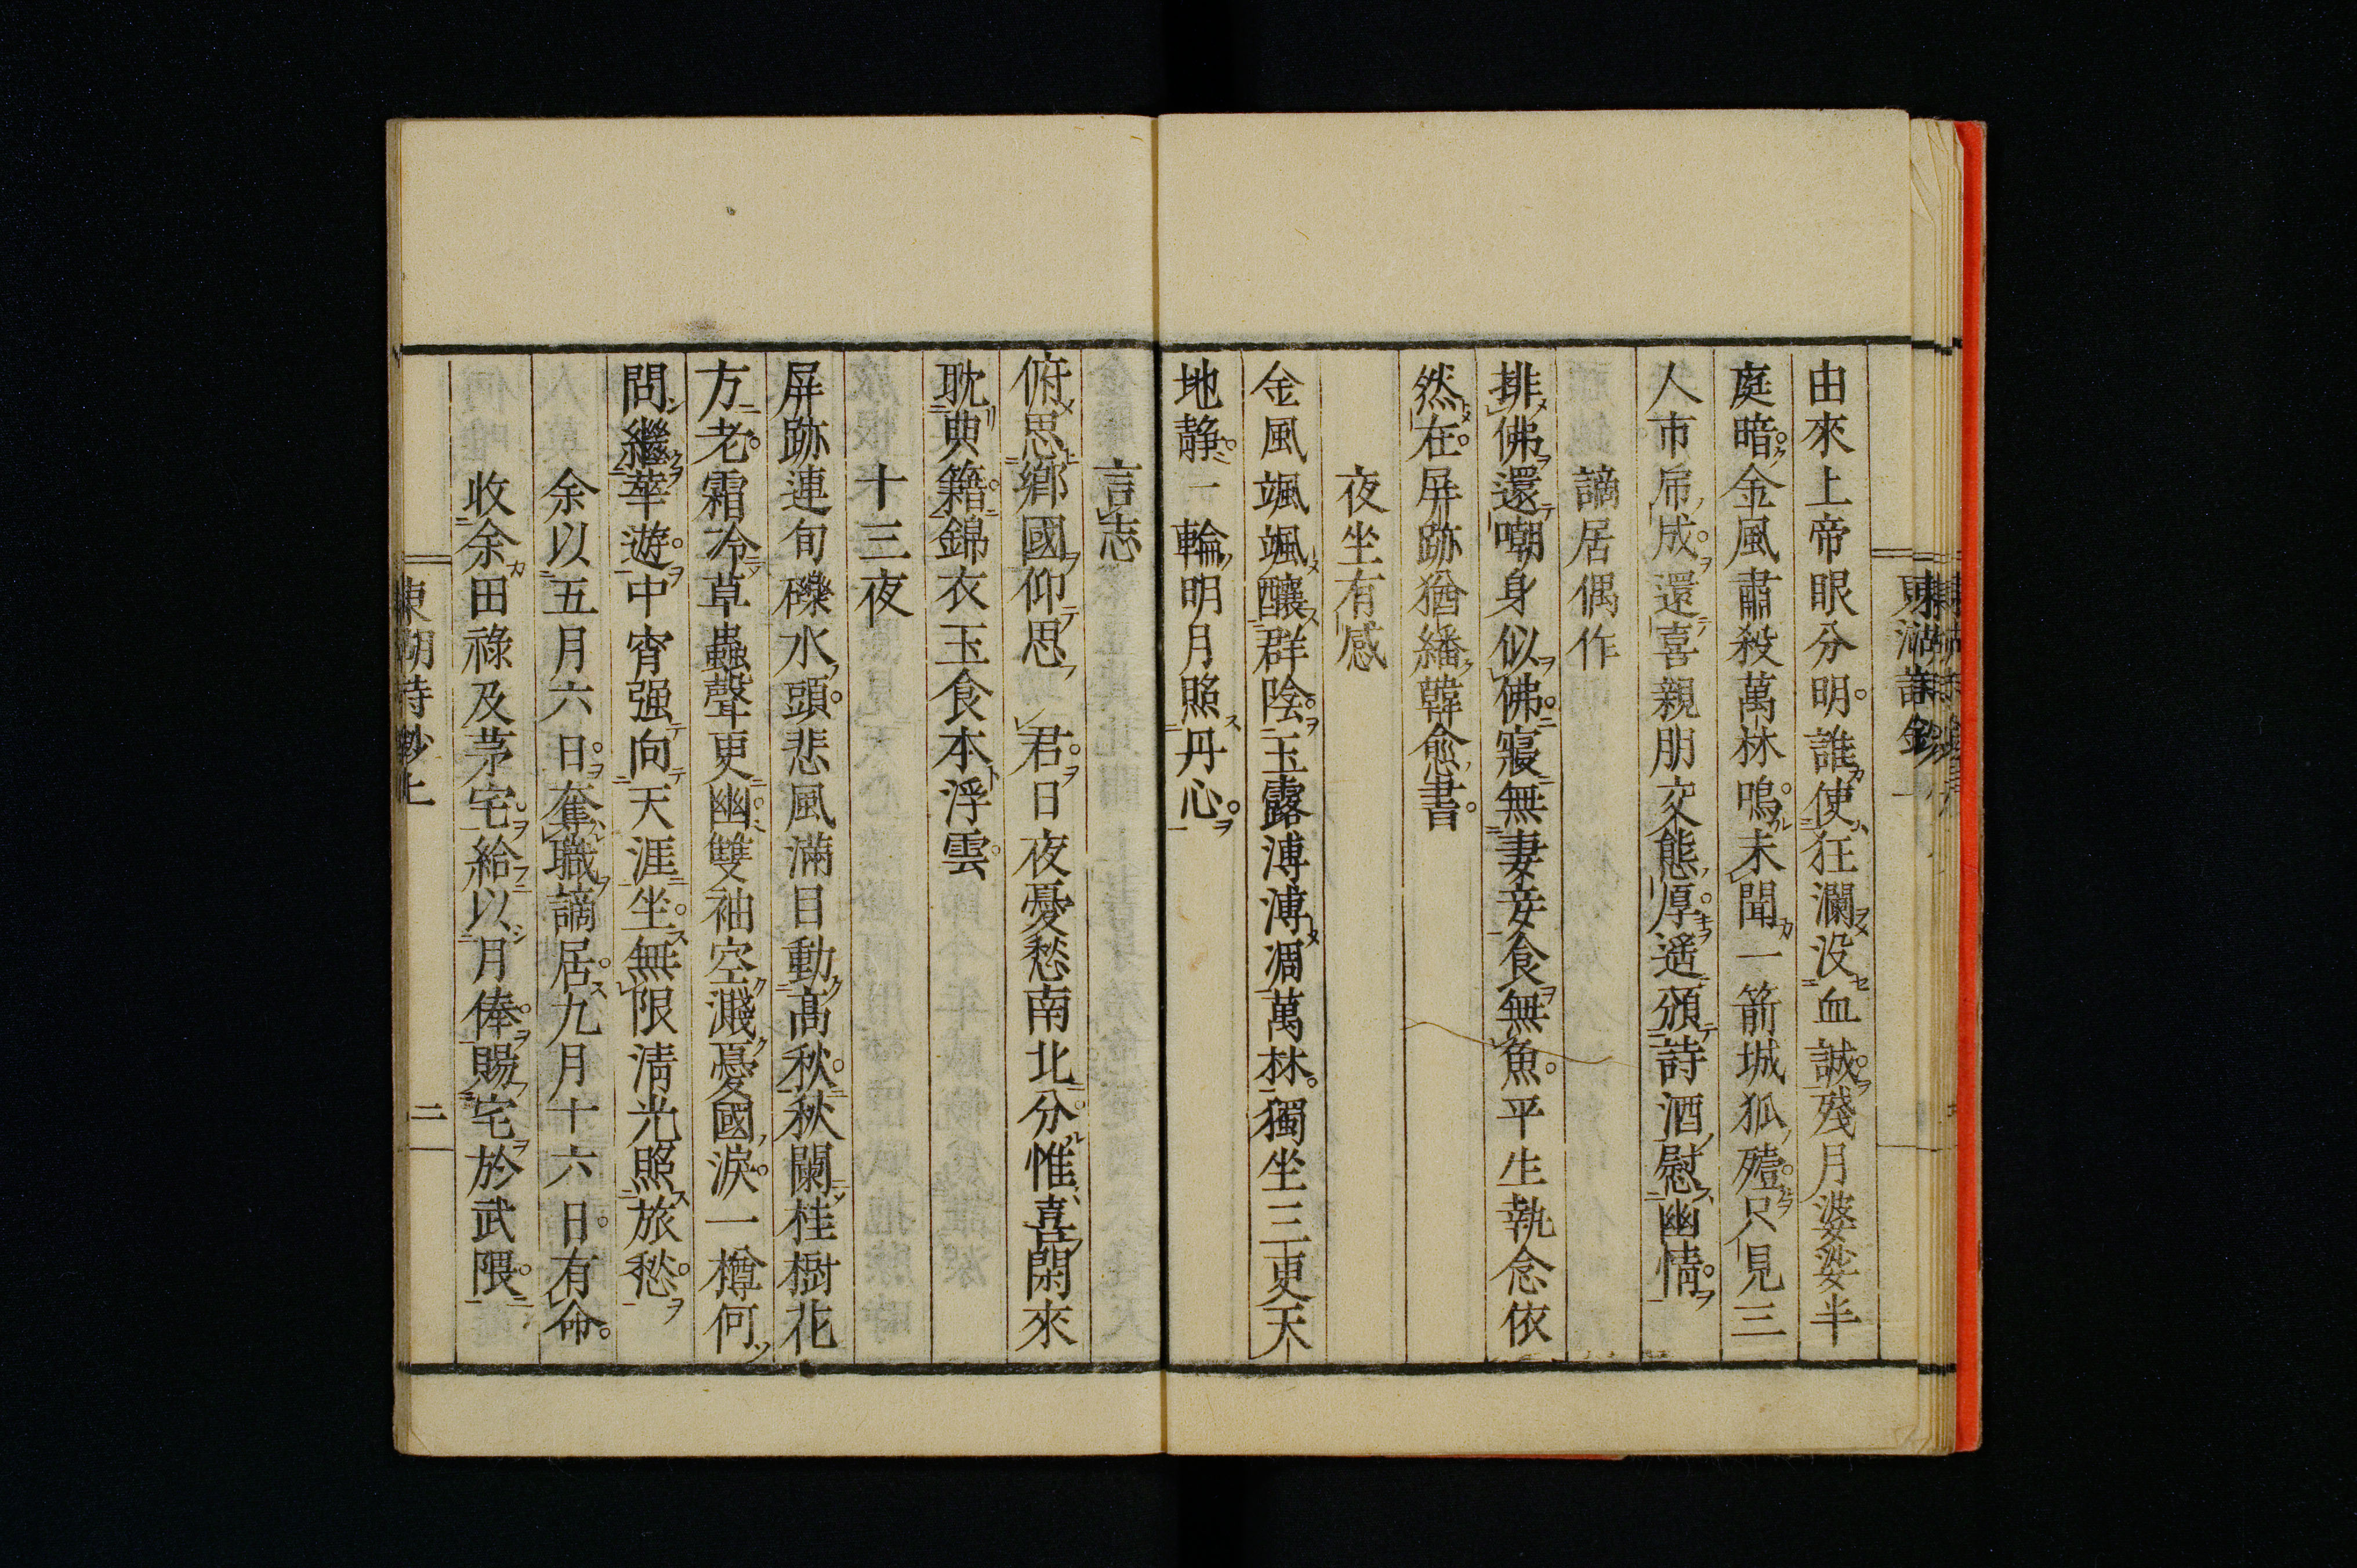 由來上帝眼分明誰使狂瀾沒血誠殘月婆娑半
庭暗金風肅殺萬林鳴未聞一箭城狐殪只見三
人市虎成還喜親朋交態厚遙頒詩酒慰幽情
謫居偶作
排佛還嘲身似佛寢無妻妾食無魚平生執念依
然在屏跡猶繙韓愈書
夜坐有感
金風颯颯釀群陰玉露溥溥凋萬林獨坐三更天
地静一輪明月照丹心
言志
俯思鄉國仰思君日夜憂愁南北分惟喜閑來
耽典籍錦衣玉食本浮雲
十三夜
屏跡連旬礫水頭悲風滿目動高秋秋闌桂樹花
方老霜冷草蟲聲更幽雙袖空濺憂國淚一樽何
問繼華遊中宵强向天涯坐無限淸光照旅愁
余以五月六日奪職謫居九月十六日有命
收余田祿及茅宅給以月俸賜宅於武隈
東湖詩鈔上
二